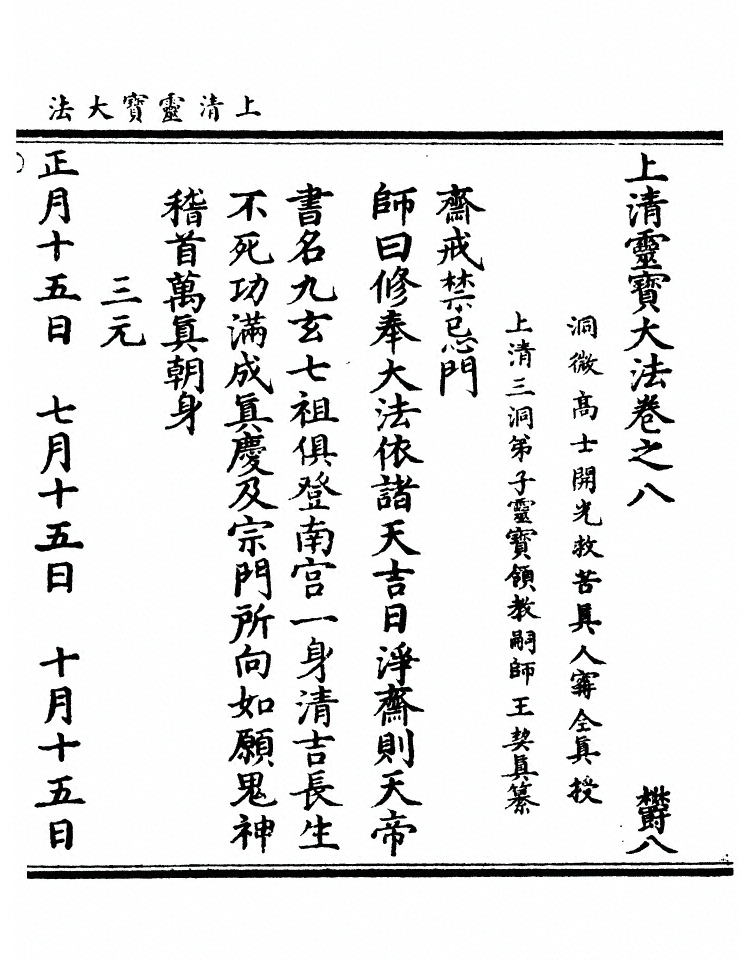 上清靈寶大法
上清靈寶大法卷之八　鬱八
洞微高士開光救苦眞人甯全眞授
上清三洞弟子靈寶領教嗣師王契眞纂
齋戒禁忌門
師曰修奉大法依諸天吉日淨齋則天帝
書名九玄七祖俱登南宮一身清吉長生
不死功滿成眞慶及宗門所向如願鬼神
稽首萬眞朝身
三元
正月十五日　七月十五日　十月十五日